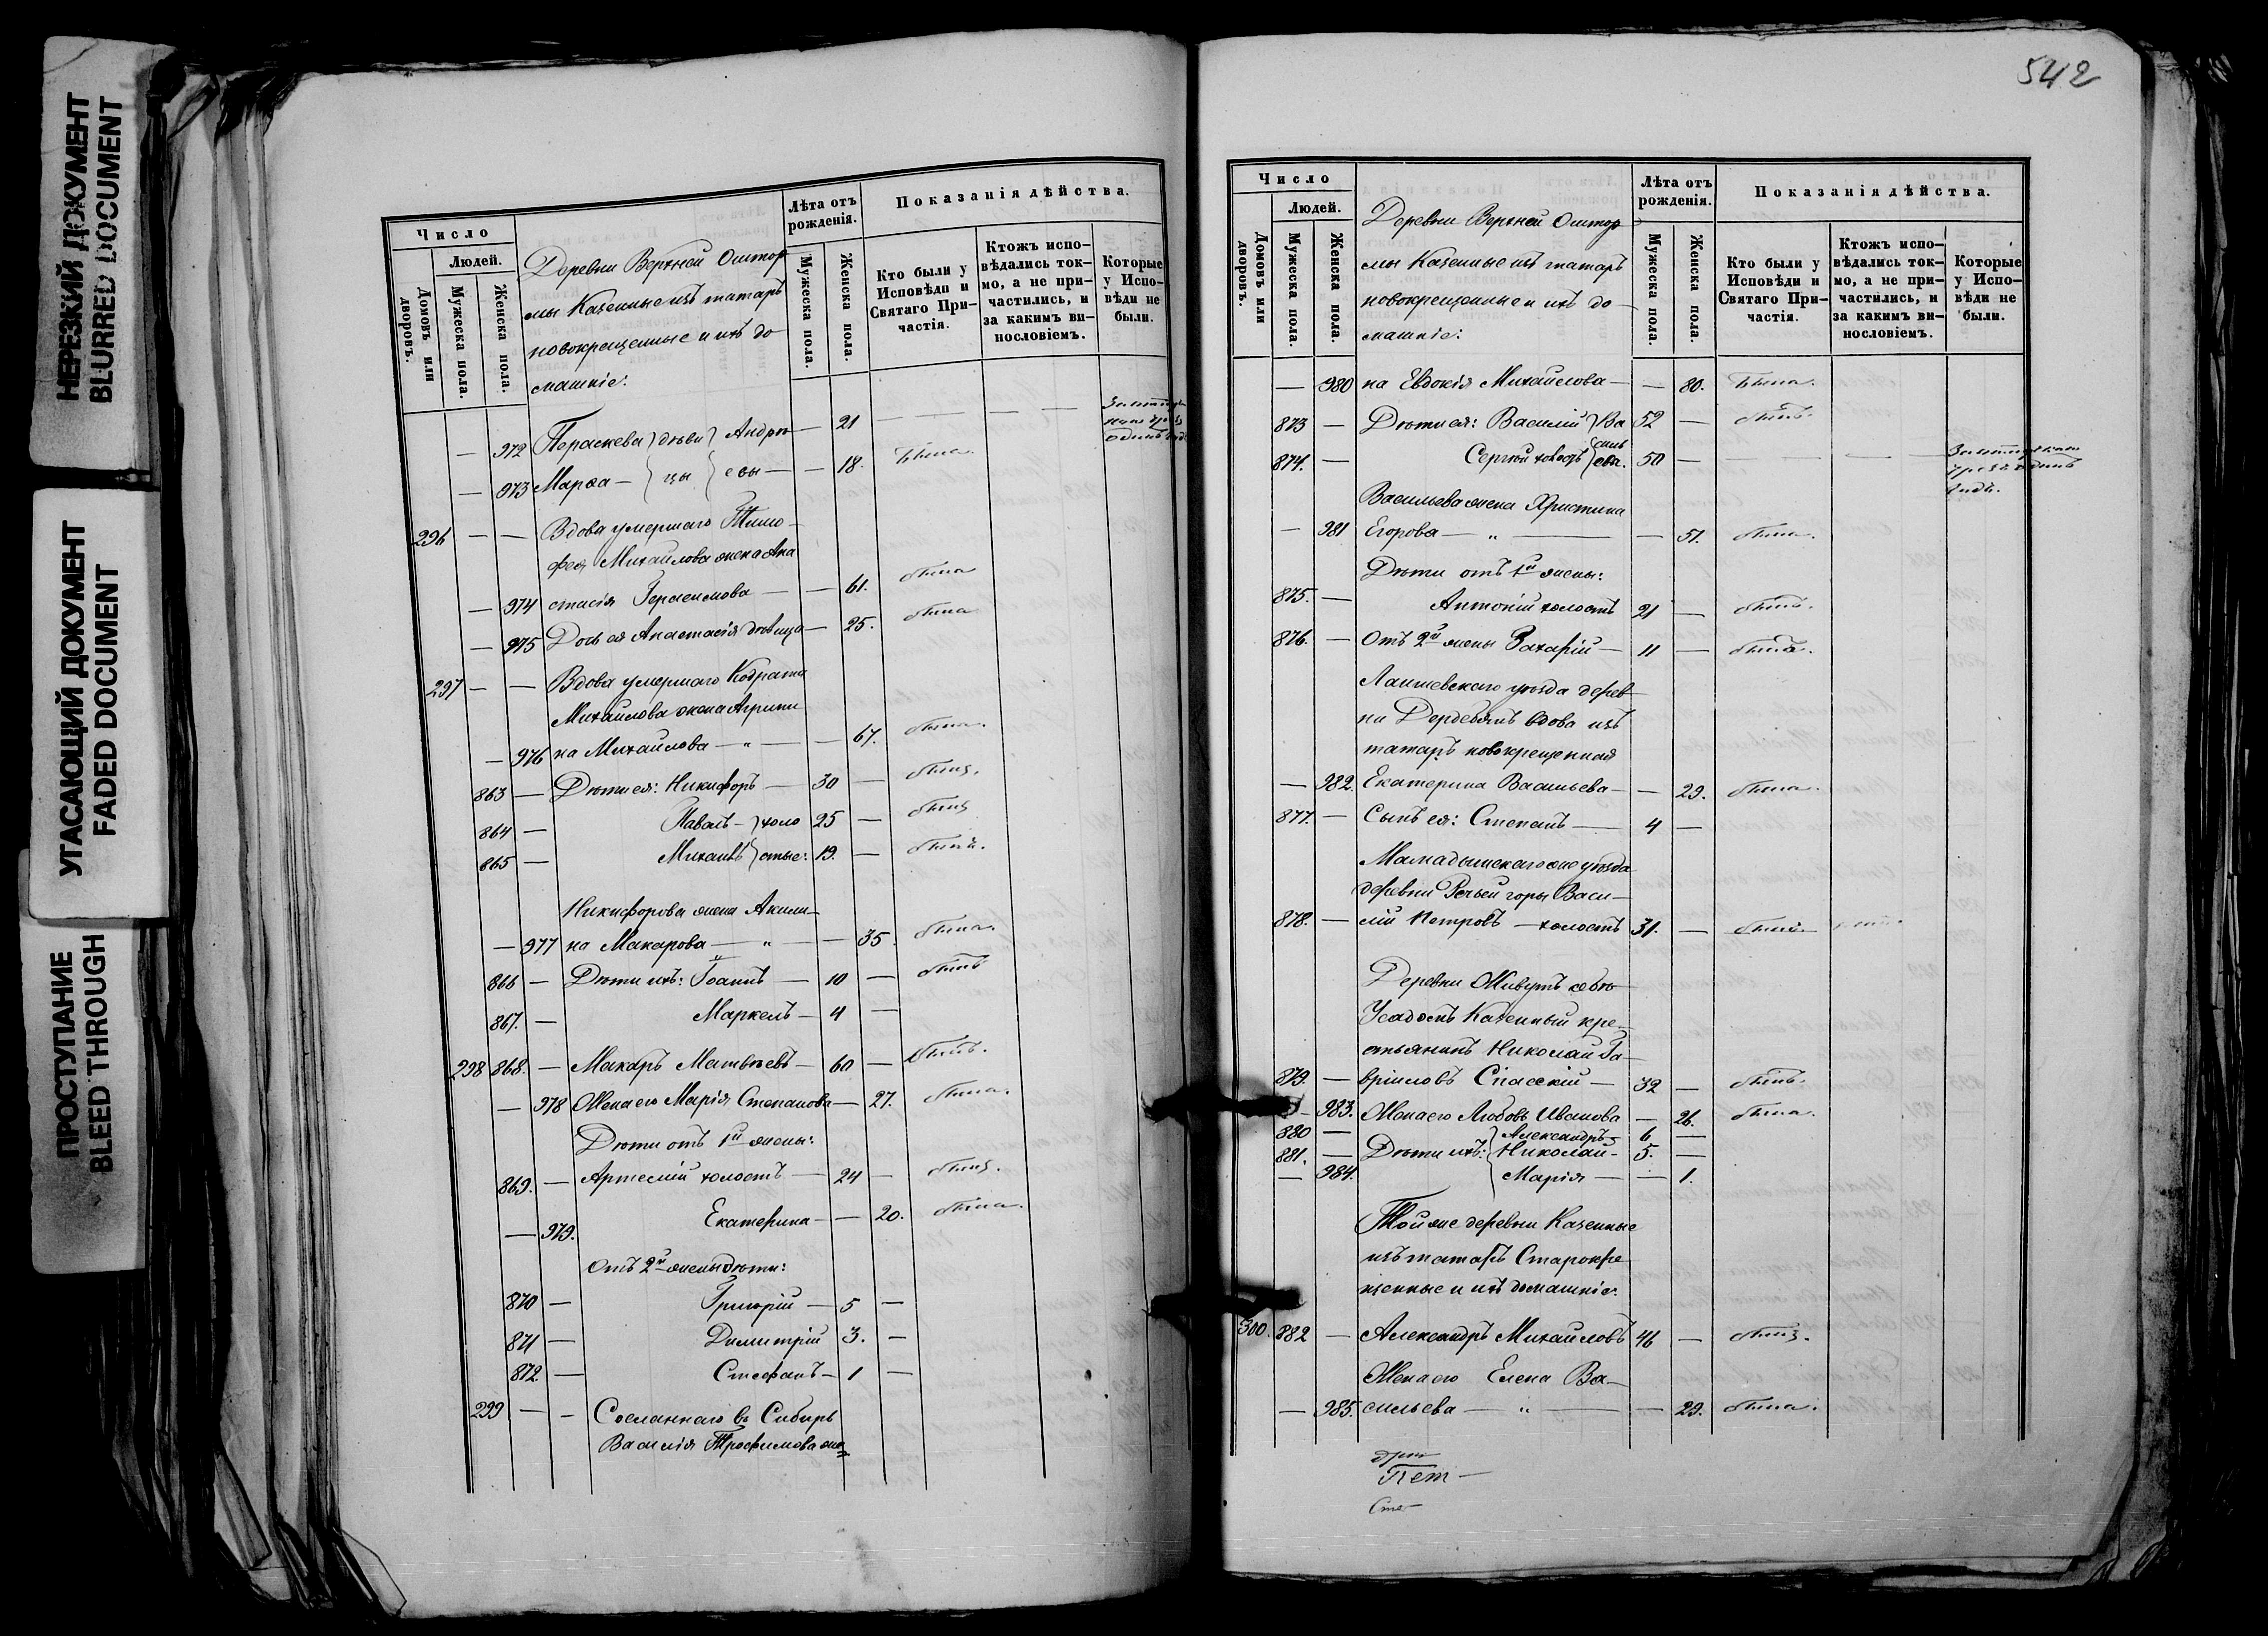 НЕРЕЗКИЙ ДОКУМЕНТ
BLURRED DOCUMENT
УГАСАЮЩИЙ ДОКУМЕНТ
FADED DOCUMENT
ПРОСТУПАНИЕ
BLEED THROUGH
Число
Людей.
Домовъ или дворовъ.
Мужеска пола.
Женска пола.
Деревни Верхней Оштор
мы Казенные изъ татаръ
новокрещенные и ихъ до
машніе:
Лѣта отъ рожденія.
Мужеска пола.
Женска пола.
Показанія дѣйства.
Кто были у Исповѣди и Святаго Причастія.
Ктожъ исповѣдались токмо, а не причастились, и за какимъ винословіемъ.
Которые у Исповѣди не были.
— 972 Параскева } дѣви } Андре — 21 — — —
— 973 Марѳа — } цы } евы — — 18. была.
296 — — Вдова умершаго Тимо—
фея Михайлова жена Ана
— 974 стасія Герасимова — — 61. была
— 975 Дочь ея Анастасія дѣвица — 25. была
297 — — Вдова умершаго Кодрата
Михайлова жена Агрипи
— 976 на Михайлова — „ — — 67. была.
863 — Дѣти ея: Никифоръ — 30 — былъ.
864 — Павелъ — } холо 25 — былъ
865 — Михаилъ } стые: 19. — былъ.
Никифорова жена Акили—
— 977 на Макарова — „ — — 35. была.
866 — Дѣти ихъ: Іоаннъ — 10 — былъ
867. — Маркелъ — 4 —
298 868. — Макаръ Матвѣевъ — 60 — былъ.
— 978 Жена его Марія Степанова — 27. была.
Дѣти отъ 1й жены:
869. — Артемій холостъ — 24 — былъ.
— 979. Екатерина — — 20. была.
Отъ 2й жены дѣти:
870 — Григорій — 5 —
871 — Димитрій 3. —
872. — Стефанъ — 1 —
299 — — Сосланнаго въ Сибирь
Василія Трофимова же
542
Число
Людей.
Домовъ или дворовъ.
Мужеска пола.
Женска пола.
Деревни Верхней Оштор
мы Казенные изъ татаръ
новокрещенные и ихъ до
машніе:
Лѣта отъ рожденія.
Мужеска пола.
Женска пола.
Показанія дѣйства.
Кто были у Исповѣди и Святаго Причастія.
Ктожъ исповѣдались токмо, а не причастились, и за какимъ винословіемъ.
Которые у Исповѣди не были.
— 980 на Евдокія Михайлова — — 80. была.
873 — Дѣти ея: Василій } Ва 52 — былъ.
874. — Сергѣй холостъ } силь евы. 50 — — —
Васильева жена Христина
— 981 Егорова — „ — — 51. была.
Дѣти отъ 1й жены:
875. — Антоній холостъ 21 — былъ.
876. — Отъ 2й жены Захарій — 11 — былъ.
Лаишевскаго уѣзда дерев—
ни вдова изъ
татаръ новокрещенная
— 982. Екатерина Васильева — — 29. была.
877. — Сынъ ея: Степанъ — 4 —
Мамадышскаго же уѣзда
деревни горы Васи—
878. — лій Петровъ — холостъ 31. — былъ
Деревни
Казенный кре—
стьянинъ Николай Га—
879. — вріиловъ Спасскій — 32 — былъ.
— 983. Жена его Любовь Иванова — 26. была.
880 — Александръ — 6 —
881. — Дѣти ихъ: Николай — 5. —
— 984. Марія — — 1.
Той же деревни Казенные
изъ татаръ Старокре
щенные и ихъ домашніе:
300. 882 — Александръ Михайловъ 46 — былъ.
Жена его Елена Ва—
— 985. сильева — „ — — 29. была.
Пет —
Сте—